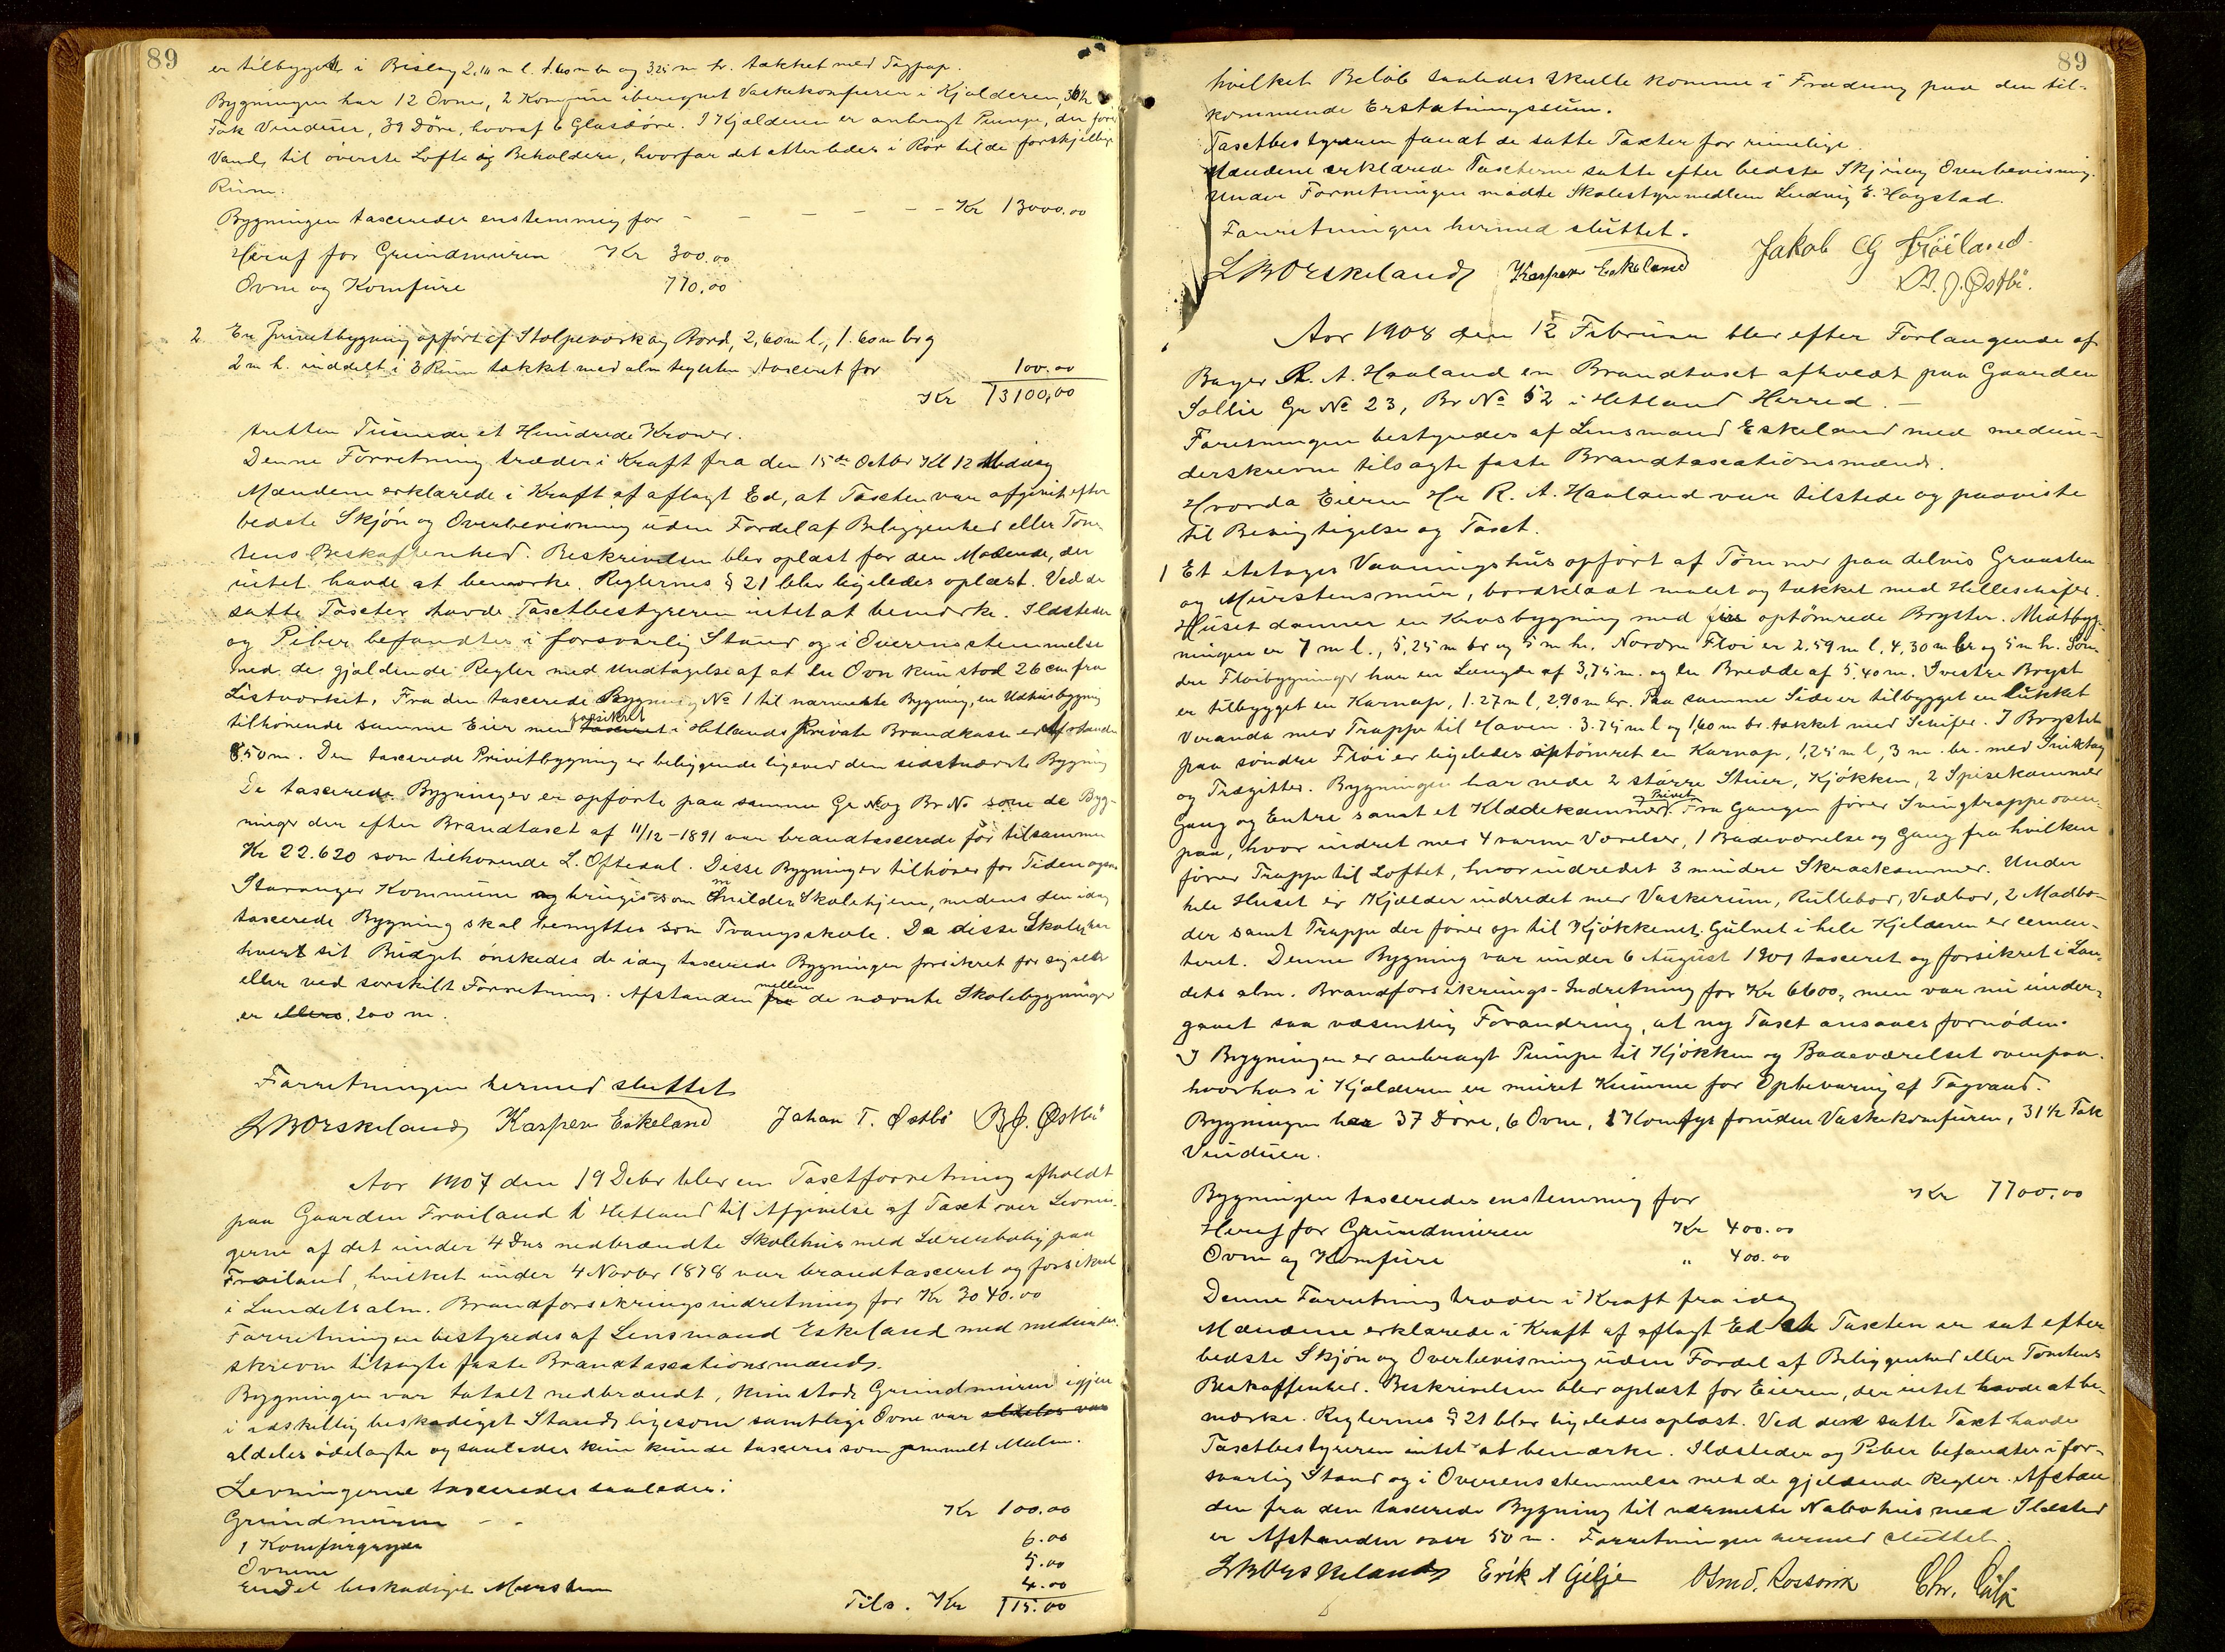 89
er tilbygget i Bislag 2.10 m l. 1.60 m br og 3.25 m h. tækket med Tagpap.
Bygningen har 12 Ovne, 2 Komfure iberegnet Vaskekomfuren i Kjælderen, 36½
Fak Vinduer, 39 Döre, hvoraf 6 Glasdöre. I Kjælderen er anbragt Pumpe, der förer
Vand til överste Lofte og Beholdere, hvorfra det atter ledes i Rör til de forskjellige
Rum.
Bygningen taxeredes enstemmig for - - - - - - Kr 13000.00
Heraf for Grundmuren Kr 300.00
Ovne og Komfure 770.00
2. En Privetbygning opfört af Stolpeværk og Bord, 2,60 m l., 1.60 m br og
2 m h. inddelt i 3 Rum tækket med alm tegelsten taxeret for 100.00
Kr 13100,00
tretten Tusinde et Hundrede Kroner.
Denne Forretning træder i Kraft fra den 15de Octbr Kl 12 Middag
Mændene erklærede i Kraft af aflagt Ed, at Taxten var afgivet efter
bedste Skjön og Overbevisning uden Fordel af Beliggenhed eller Tom-
tens Beskaffenhed. Beskrivelsen blev oplæst for den Mödende, der
intet havde at bemærke. Reglernes § 21 blev ligeledes oplæst. Ved de
satte Taxter havde Taxtbestyreren intet at bemærke. Ildsteder
og Piber befandtes i forsvarlig Stand og i Overensstemmelse
med de gjældende Regler med Undtagelse af at en Ovn kun stod 26 cm fra
Listværket. Fra den taxerede Bygning No 1 til nærmeste Bygning, en Udhusbygning
tilhörende samme Eier men forsikret i Hetlands Private Brandkasse er Afstanden
8.50 m. Den taxerede Privetbygning er beliggende ligeved den sidstnævnte Bygning
De taxerede Bygninger er opförte paa samme Gr No og Br No som de Byg-
ninger der efter Brandtaxt af 11/12-1891 var brandtaxerede for tilsammen
Kr 22.620 som tilhörende L. Oftedal. Disse Bygninger tilhörer for Tiden ogsaa
Stavanger Kommune og bruges som mildere Skolehjem, medens den idag
taxerede Bygning skal benyttes som Tvangsskole. Da disse Skoler har
hvert sit Budget önskedes de idag taxerede Bygninger forsikret for sig selv
eller ved særskilt Forretning. Afstanden mellem de nævnte Skolebygninger
er ellers 200 m.
Forretningen hermed sluttet
L W Orskeland Kasper Eskeland Johan T. Østbö B J. Østbö
Aar 1907 den 19 Debr blev en Taxtforretning afholdt
paa Gaarden Fröiland i Hetland til Afgivelse af Taxt over Levnin-
gerne af det under 4 Ds nedbrændte Skolehus med Lærerbolig paa
Fröiland, hvilket under 4 Novbr 1878 var brandtaxeret og forsikret
i Landets alm. Brandforsikringsindretning for Kr 3040.00
Forretningen bestyredes af Lensmand Eskeland med medunder-
skrevne tilsagte faste Brandtaxationsmænd.
Bygningen var totalt nedbrændt, kun stod Grundmuren igjen
i adskillig beskadiget Stand, ligesom samtlige Ovne var aldeles var
aldeles ödelagte og saaledes kun kunde taxeres som gammelt Malm.
Levningerne taxeredes saaledes:
Grundmuren - - Kr 100.00
1 Komfurgryde 6.00
Ovnene 5.00
En Del beskadiget Mursten 4.00
Tils. Kr 115.00
89
hvilket Belöb saaledes skulle komme i Fradrag paa den til-
kommende Erstatningssum.
Taxtbestyreren fandt de satte Taxter for rimelige.
Mændene erklærede Taxterne satte efter bedste Skjön og Overbevisning.
Under Forretningen mödte Skolestyremedlem Ludvig E. Hogstad.
Forretningen hermed sluttet.
L W Orskeland Kasper Eskeland Jakob G Fröiland
B. J. Østbö.
Aar 1908 den 12 Februar blev efter Forlangende af
Bager R. A. Haaland en Brandtaxt afholdt paa Gaarden
Sollie Gr No 23, Br No 52 i Hetland Herred. -
Foretningen bestyredes af Lensmand Eskeland med medun-
derskrevne tilsagte faste Brandtaxationsmænd.
Hvorda Eieren Hr R. A. Haaland var tilstede og paaviste
til Besigtigelse og Taxt.
1 Et etetages Vaaningshus opfört af Tömmer paa delvis Graasten
og Murstensmur, bordklædt malet og tækket med Helleskifer.
Huset danner en Krosbygning med fire optömrede Bryster. Midtbyg-
ningen er 7 m l., 5,25 m br og 5 m h. Nordre Flöi er 2.59 m l, 4,30 m br og 5 m h. Sön-
dre Flöibygninger har en Længde af 3,75 m. og en Bredde af 5.40 m. I vestre Bryst
er tilbygget en Karnap, 1.27 m l, 2,90 m br. Paa samme Side er tilbygget en lukket
Veranda med Trappe til Haven. 3.75 m l og 1,60 m br. tækket med Schifer. I Brystet
paa söndre Flöi er ligeledes optömret en Karnap, 1,25 m l, 3 m br. med Sniktag
og Trægitter. Bygningen har nede 2 större Stuer, Kjökken, 2 Spisekammer
Gang og Entre samt et Klædekammer, Privet. Fra Gangen förer Svingtrappe oven-
paa, hvor indret med 4 varme Værelser, 1 Badeværelse og Gang fra hvilken
förer Trappe til Loftet, hvor indredet 3 mindre Skraakammer. Under
hele Huset er Kjælder indredet med Vaskerum, Rullebod, Vedbod, 2 Madbo-
der samt Trappe der förer op til Kjökkenet. Gulvet i hele Kjelderen er cemen-
teret. Denne Bygning var under 6 August 1901 taxeret og forsikret i Lan-
dets alm. Brandforsikrings-Indretning for Kr 6600, men var nu under-
gaaet saa væsentlig Forandring, at ny Taxt ansaaes fornöden.
I Bygningen er anbragt Pumpe til Kjökken og Badeværelset ovenpaa.
hvorhos i Kjælderen er muret Kumme for Opbevaring af Tagvand.
Bygningen har 37 Döre, 6 Ovne, 1 Komfyr foruden Vaskekomfuren, 31½ Fak
Vinduer.
Bygningen taxeredes enstemmig for Kr 7700.00
Heraf for Grundmuren Kr 400.00
Ovne og Komfure " 400.00
Denne Forretning træder i Kraft fra idag
Mændene erklærede i Kraft af aflagt Ed at Taxten er sat efter
bedste Skjön og Overbevisning uden Fordel af Beliggenhed eller Tomtens
Beskaffenhed. Beskrivelsen blev oplæst for Eieren, der intet havde at be-
mærke. Reglernes § 21 blev ligeledes oplæst. Ved den satte Taxt havde
Taxtbestyreren intet at bemærke. Ildsteder og Piber befandtes i for-
svarlig Stand og i Overensstemmelse med de gjeldende Regler. Afstan
den fra den taxerede Bygning til nærmeste Nabohus med Ildsted
er Afstanden over 50 m. Forretningen hermed sluttet.
L W Orskeland Erik A Gilje Osmd. Rossavik Chr. Gilje